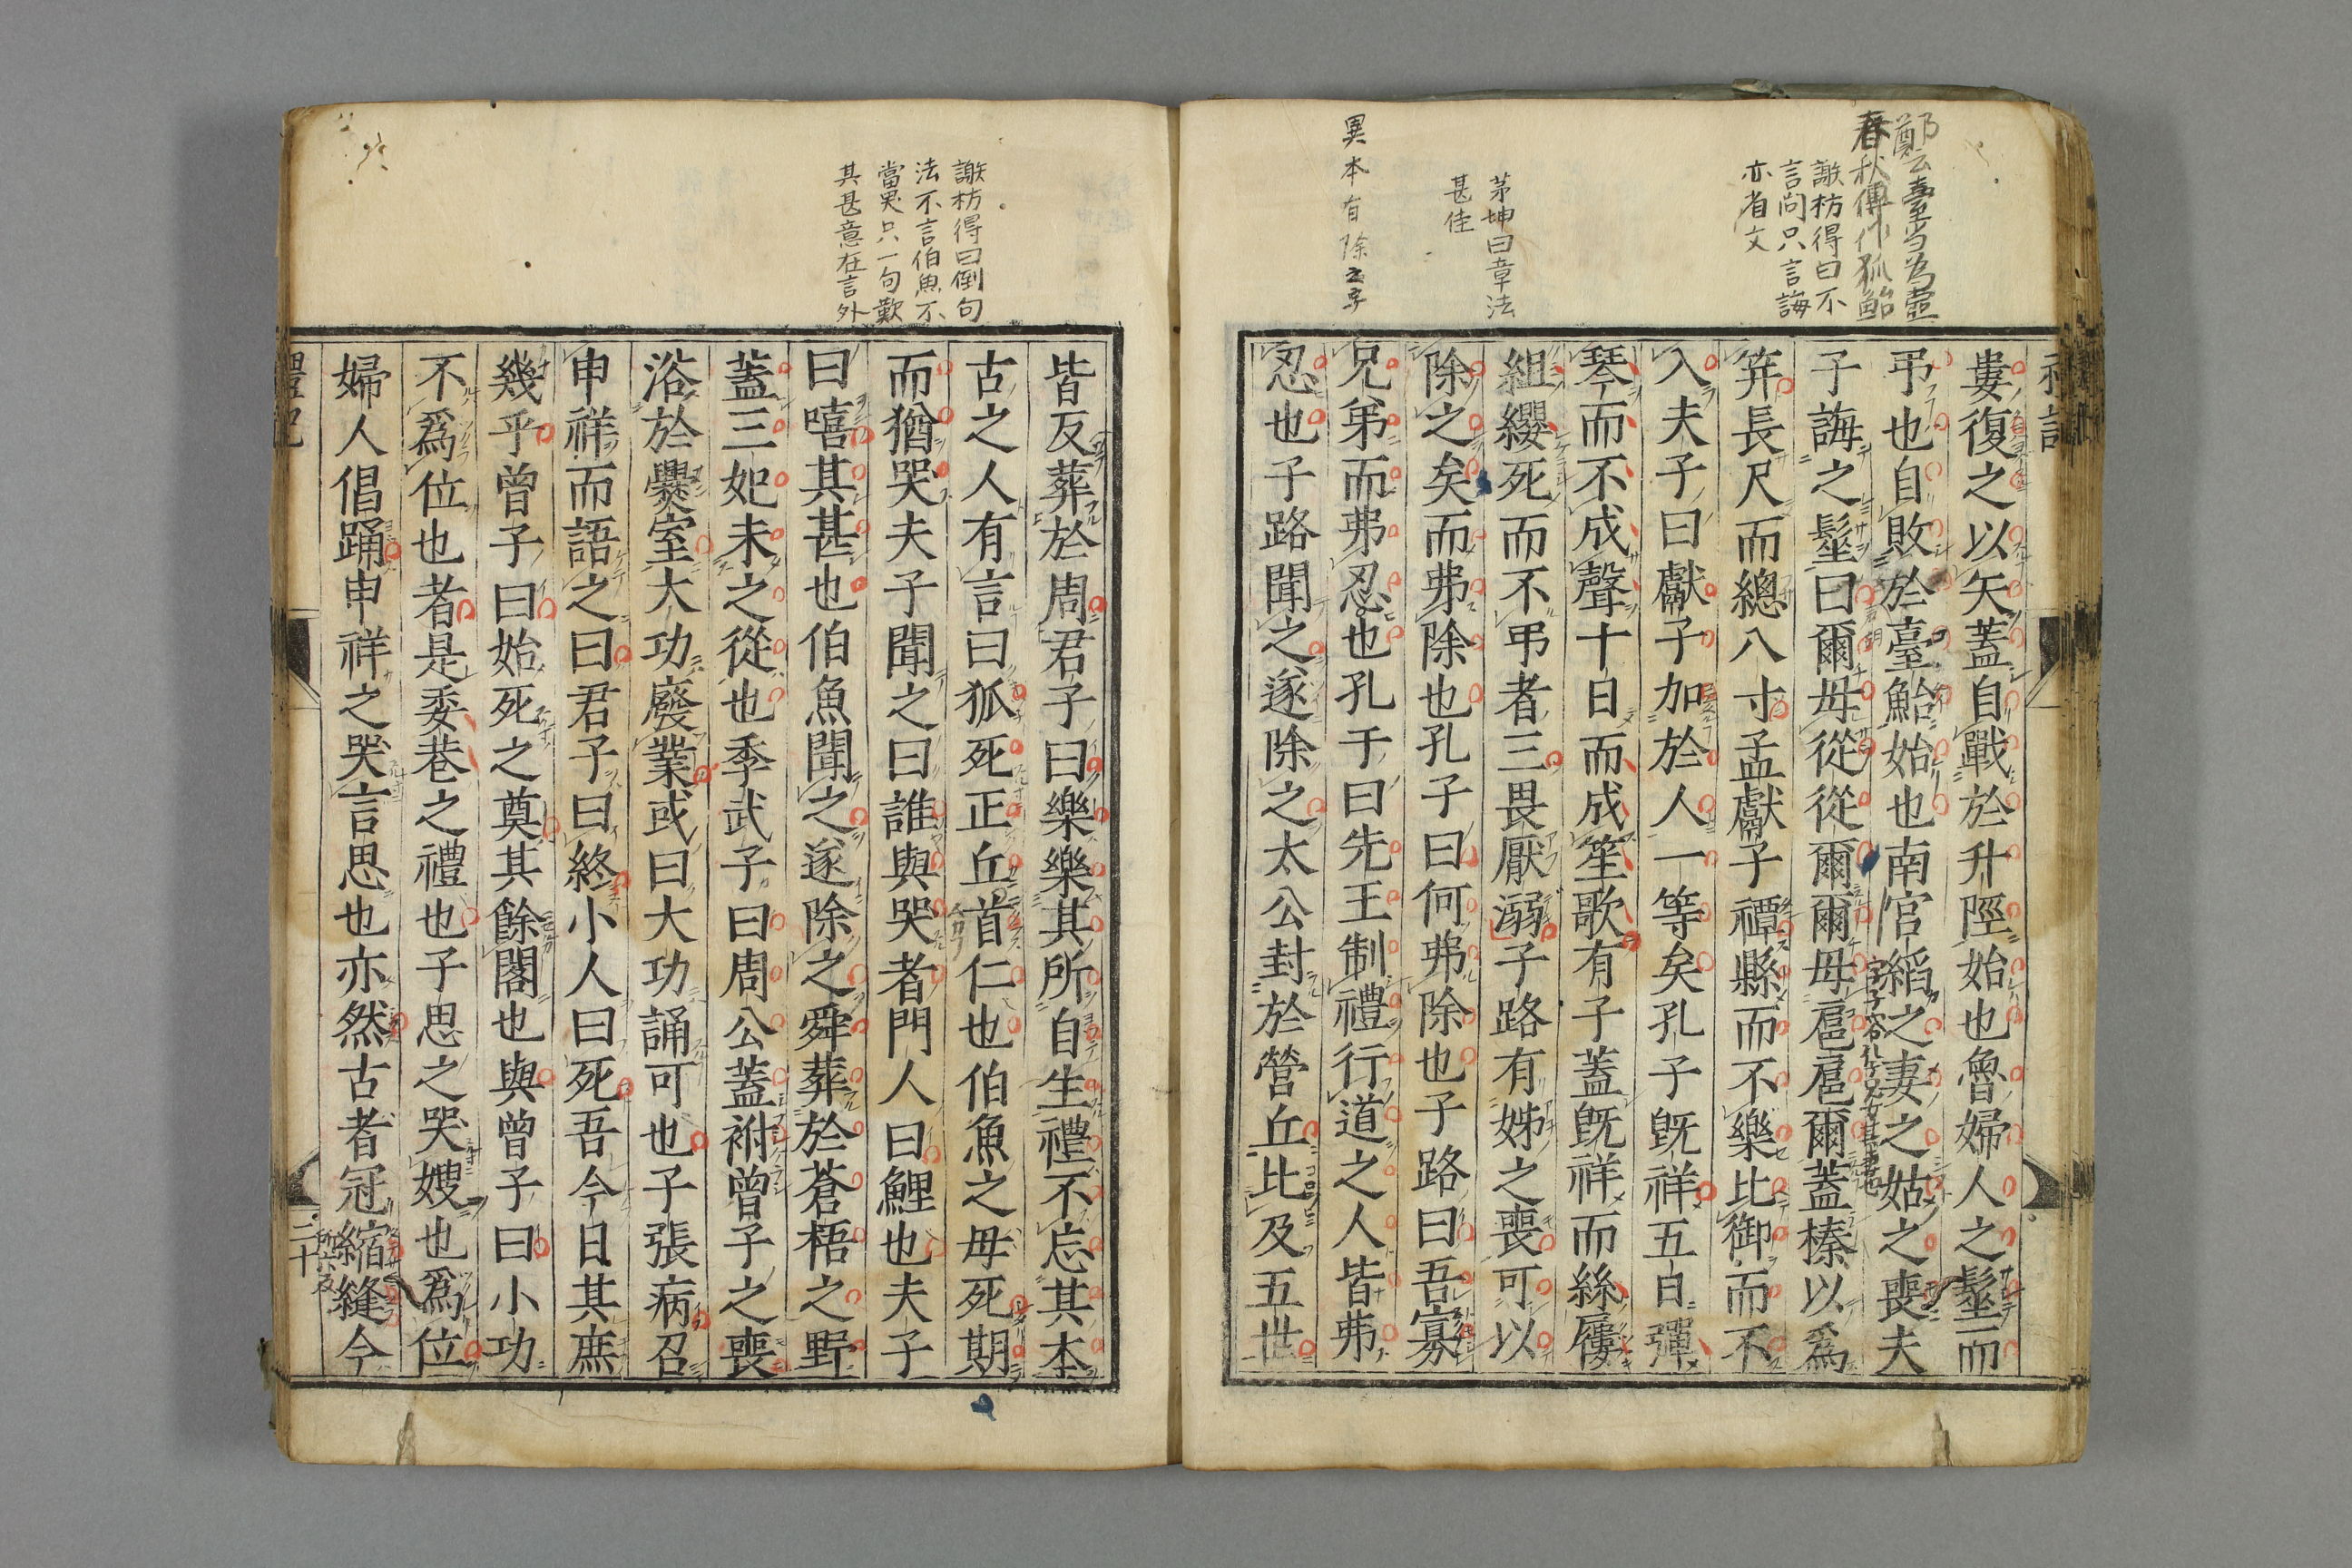 鄭云臺當為壺
春秋傳作狐鮐
謝枋得曰不
言問只言誨
亦省文
茅坤曰章法
甚佳
異本有除之字
婁復之以矢蓋自戰於升陘始也魯婦人之髽而
弔也自敗於臺鮐始也南宮縚之妻之姑之喪夫
子誨之髽曰爾毋從從爾爾毋扈扈爾蓋榛以爲
筓長尺而總八寸孟獻子禫縣而不樂比御而不
入夫子曰獻子加於人一等矣孔子旣祥五日彈
琴而不成聲十日而成笙歌有子蓋旣祥而絲屨
組纓死而不弔者三畏厭溺子路有姊之喪可以
除之矣而弗除也孔子曰何弗除也子路曰吾寡
兄弟而弗忍也孔子曰先王制禮行道之人皆弗
忍也子路聞之遂除之太公封於營丘比及五世
謝枋得曰倒句
法不言伯魚不
當哭只一句歎
其甚意在言外
皆反葬於周君子曰樂樂其所自生禮不忘其本
古之人有言曰狐死正丘首仁也伯魚之母死期
而猶哭夫子聞之曰誰與哭者門人曰鯉也夫子
曰嘻其甚也伯魚聞之遂除之舜葬於蒼梧之野
蓋三妃未之從也季武子曰周公蓋祔曾子之喪
浴於爨室大功廢業或曰大功誦可也子張病召
申祥而語之曰君子曰終小人曰死吾今日其庶
幾乎曾子曰始死之奠其餘閣也與曾子曰小功
不爲位也者是委巷之禮也子思之哭嫂也爲位
婦人倡踊申祥之哭言思也亦然古者冠縮縫今
禮記
二十